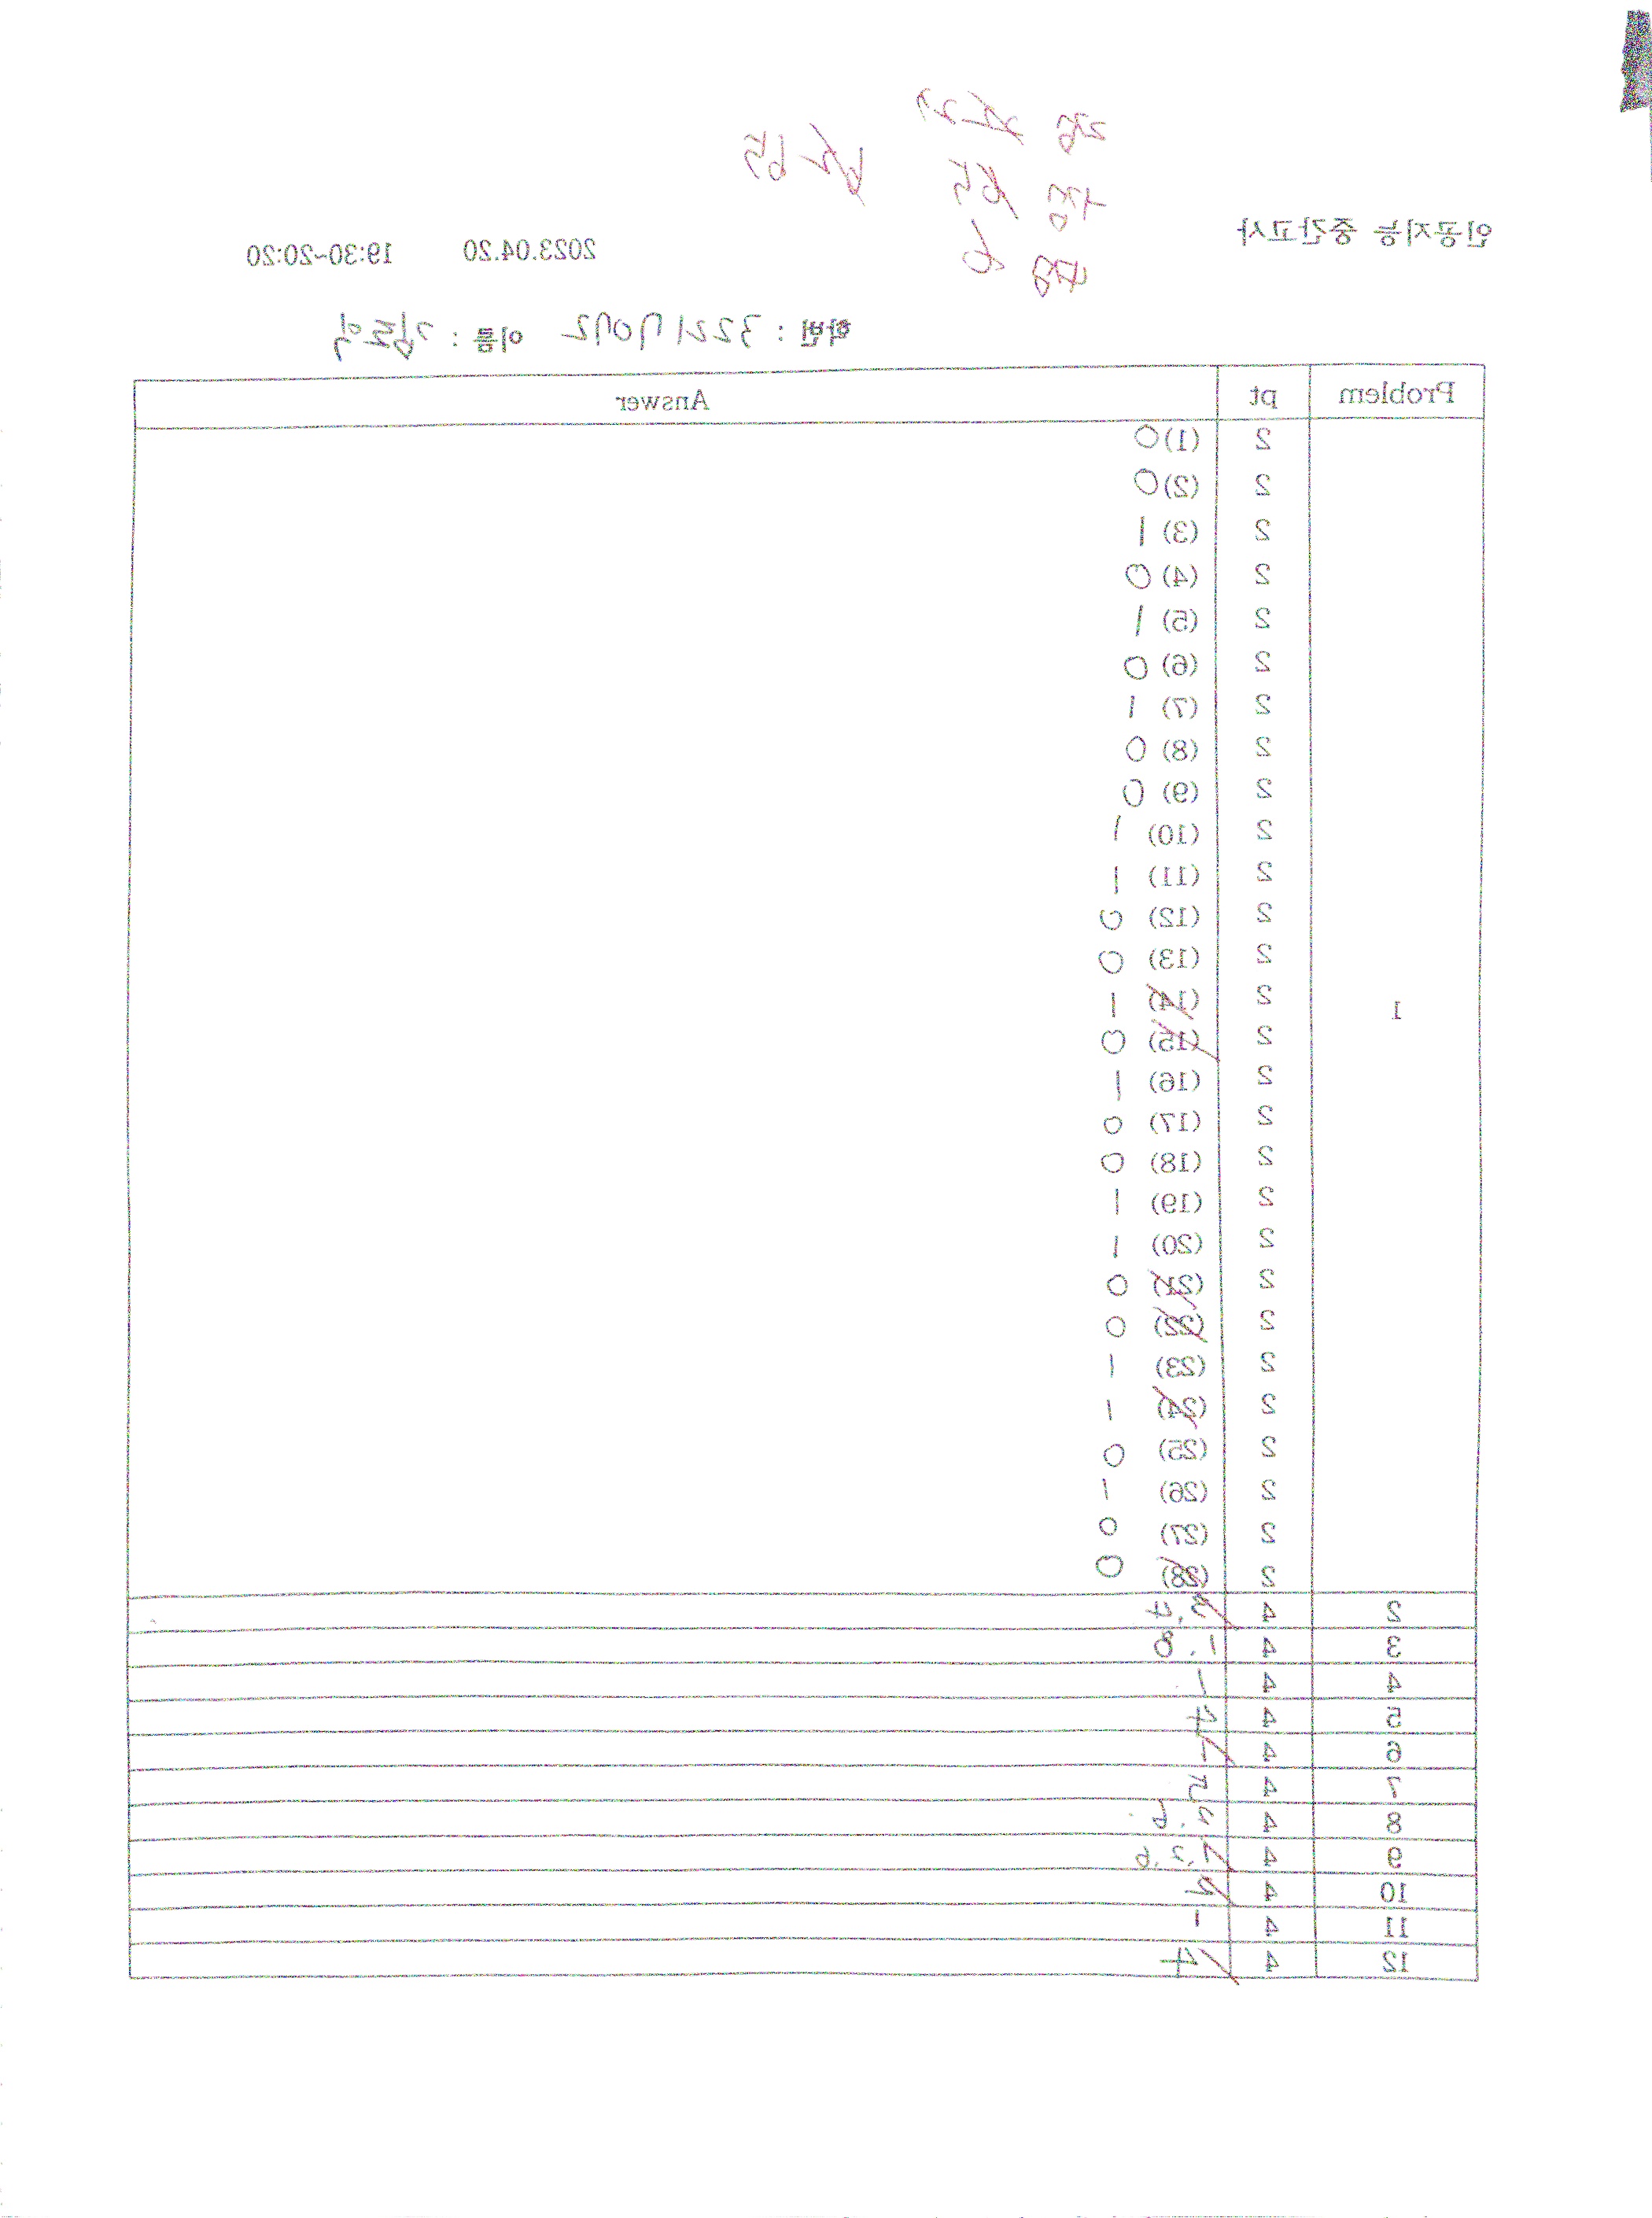 인공지능 중간고사 2023.04.20 19:30~20:20
학번 : 32217072 이름 :
Problem pt Answer
1
2 (1) 0
2 (2) 0
2 (3) 1
2 (4) 0
2 (5) 1
2 (6) 0
2 (7) 1
2 (8) 0
2 (9) 0
2 (10) 1
2 (11) 1
2 (12) 0
2 (13) 0
2 (14) 1
2 (15) 0
2 (16) 1
2 (17) 0
2 (18) 0
2 (19) 1
2 (20) 1
2 (21) 0
2 (22) 0
2 (23) 1
2 (24) 1
2 (25) 0
2 (26) 1
2 (27) 0
2 (28) 0
2 4 3, 7
3 4 1, 8
4 4 1
5 4 4
6 4 1
7 4 5
8 4 6
9 4 1, 2, 6
10 4 2
11 4 1
12 4 4